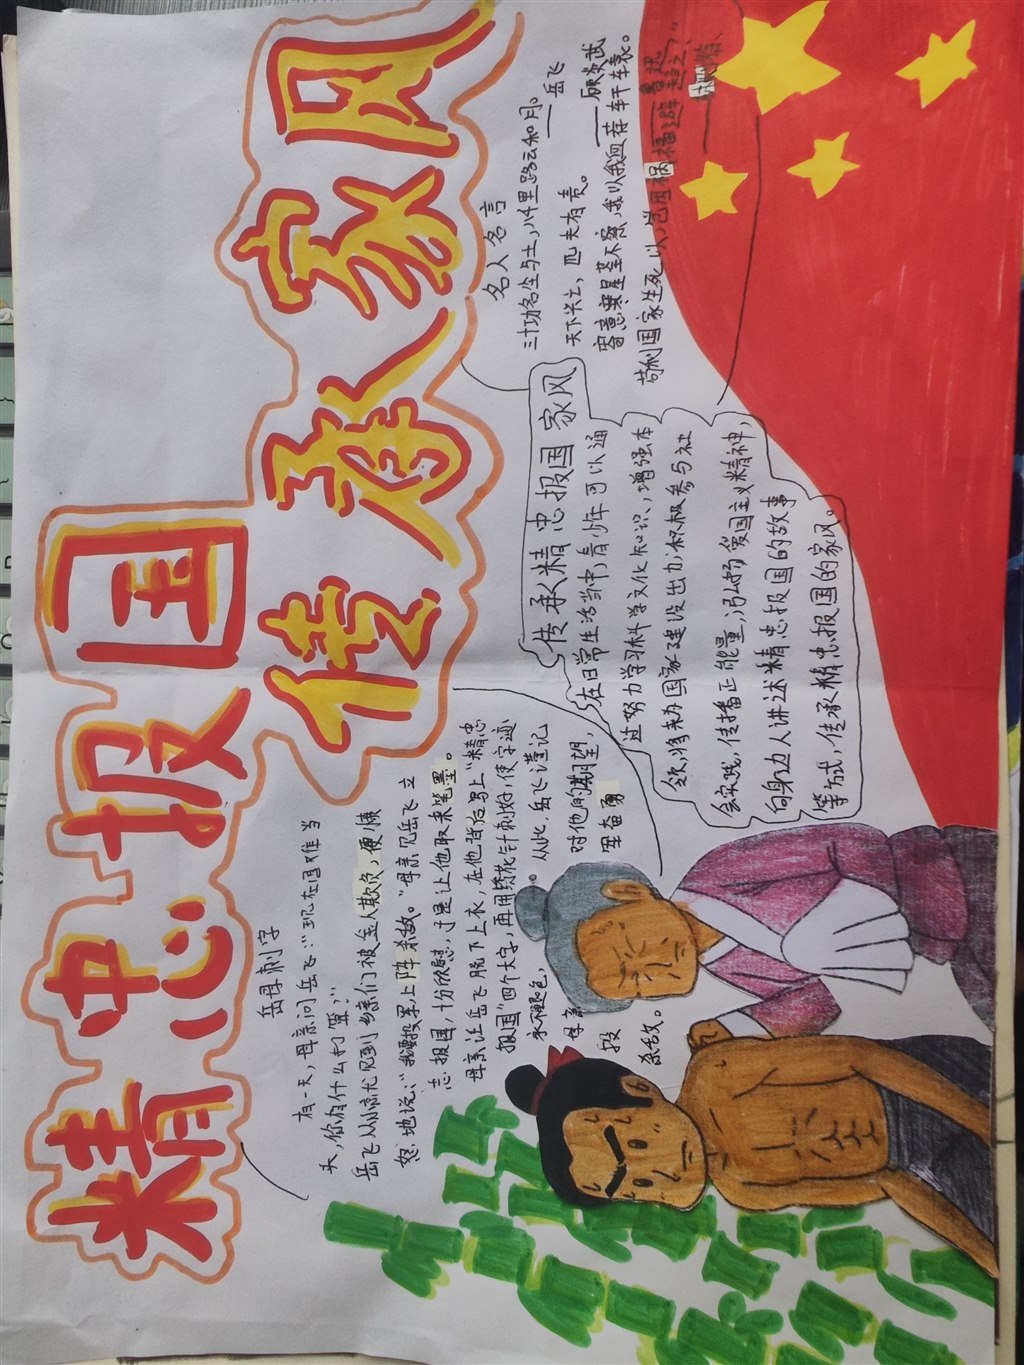 精忠报国
传承家风
岳母刺字
有一天,母亲问岳飞:“现在国难当
头,你有什么打算?”
岳飞从小就见到乡亲们被金人欺负,便愤
怒地说:“我要投军,上阵杀敌。”母亲见岳飞立
志报国,十分欣慰,于是让他取来笔墨。
母亲让岳飞脱下上衣,在他背后写上“精忠
报国”四个大字,再用绣花针刺好,使字迹
永不褪色,从此,岳飞谨记
母亲对他的期望,
投军奋勇
杀敌。
名人名言
三十功名尘与土,八千里路云和月。
——岳飞
天下兴亡,匹夫有责。
——顾炎武
寄意寒星荃不察,我以我血荐轩辕。
——鲁迅
苟利国家生死以,岂因祸福避趋之!
传承精忠报国家风
在日常生活当中,青少年可以通
过努力学习科学文化知识,增强本
领,将来为国家建设出力;积极参与社
会实践,传播正能量,弘扬爱国主义精神,
向身边人讲述精忠报国的故事
等方式,传承精忠报国的家风。